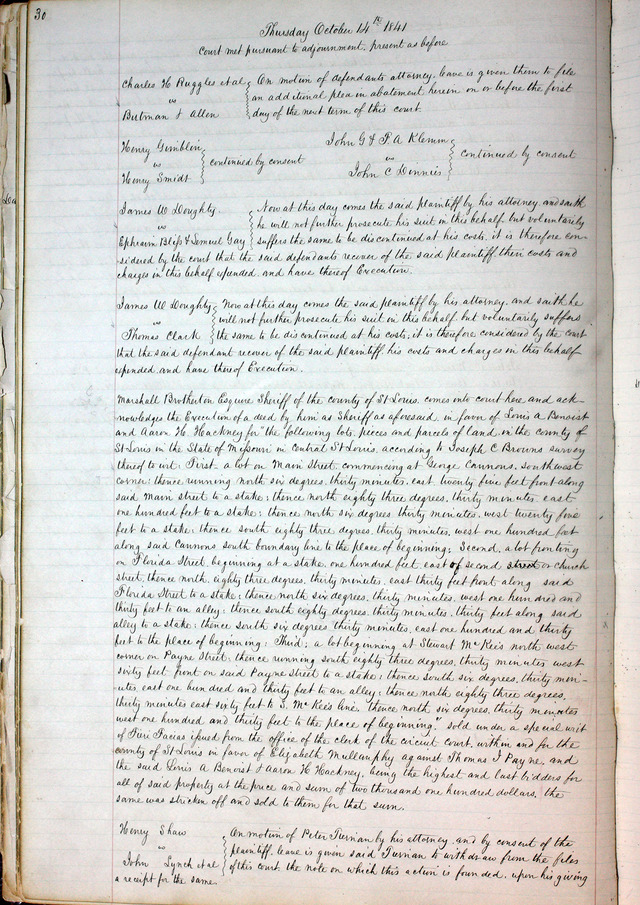 30
Thursday October 14th 1841
Court met pursuant to adjournment, present as before
Charles H Ruggles et al
vs
Butman & Allen
On motion of defendants attorney, leave is given them to file
an additional plea in abatement herein on or before the first
day of the next term of this court
Henry Gimblin
vs
Henry Smidt
continued by consent
John G & P. A Klemm
vs
John C Dinnis
continued by consent
James W Doughty
vs
Ephraim Bliss & Lemuel Gay
Now at this day comes the said plaintiff by his attorney, and saith
he will not further prosecute his suit in this behalf, but voluntarily
suffers the same to be discontinued at his costs, it is therefore con-
sidered by the court that the said defendants recover of the said plaintiff their costs and
charges in this behalf expended, and have thereof Execution.
James W Doughty
vs
Thomas Clark
Now at this day comes the said plaintiff by his attorney, and saith he
will not further prosecute his suit in this behalf but voluntarily suffers
the same to be discontinued at his costs, it is therefore considered by the court
that the said defendant recover of the said plaintiff his costs and charges in this behalf
expended and have thereof Execution.
Marshall Brotherton Esquire Sheriff of the county of St Louis, comes into court here and ack-
nowledges the Execution of a deed by him as Sheriff as aforesaid, in favor of Louis A Benoist
and Aaron H. Hackney for "the following lots, pieces and parcels of land, in the county of
St Louis in the State of Missouri in Central St Louis, according to Joseph C Browns survey
thereof to wit: First. a lot on Main Street, commencing at George Cannons, Southwest
corner; thence running north six degrees, thirty minutes, east twenty five feet front along
said Main street to a stake; thence north eighty three degrees, thirty minutes east
one hundred feet to a stake; thence north six degrees thirty minutes, west twenty five
feet to a stake; thence south eighty three degrees, thirty minutes, west one hundred feet
along said Cannons south boundary line to the place of beginning; Second, a lot fronting
on Florida Street, beginning at a stake, one hundred feet, east of second street or church
street, thence north, eighty three degrees, thirty minutes, east thirty feet front along said
Florida Street to a stake; thence north six degrees, thirty minutes, west one hundred and
thirty feet to an alley; thence south eighty degrees, thirty minutes, thirty feet along said
alley to a stake; thence south six degrees, thirty minutes, east one hundred and thirty
feet to the place of beginning; Third; a lot beginning at Stewart McKees north west
corner on Payne Street; thence running south eighty three degrees, thirty minutes west
sixty feet front on said Payne street to a stake; thence south six degrees, thirty min-
utes, east one hundred and thirty feet to an alley; thence north eighty three degrees,
thirty minutes east sixty feet to S. McKees line. thence north six degrees, thirty minutes
west one hundred and thirty feet to the place of beginning". sold under a special writ
of Fieri Facias issued from the office of the clerk of the circuit court, within and for the
county of St Louis in favor of Elizabeth Mullanphy against Thomas J Payne, and
the said Louis A Benoist & Aaron H Hackney, being the highest and last bidders for
all of said property at the price and sum of two thousand one hundred dollars, the
same was stricken off and sold to them for that sum.
Henry Shaw
vs
John Lynch et al
On motion of Peter Turnan by his attorney, and by consent of the
plaintiff, leave is given said Turnan to withdraw from the files
of this court, the note on which this action is founded, upon his giving
a receipt for the same.